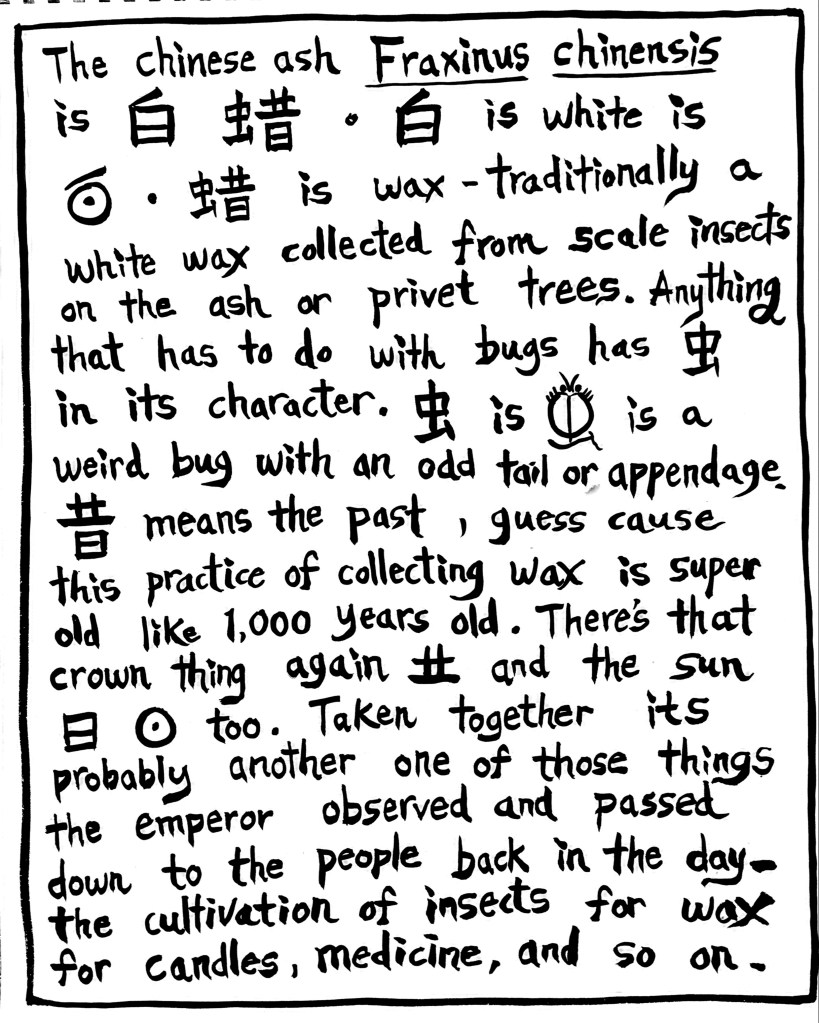 The chinese ash Fraxinus chinensis
is 白 蜡 · 白 is white is
· 蜡 is wax - traditionally a
white wax collected from scale insects
on the ash or privet trees. Anything
that has to do with bugs has 虫
in its character. 虫 is is a
weird bug with an odd tail or appendage.
昔 means the past, guess cause
this practice of collecting wax is super
old like 1,000 years old. There's that
crown thing again 龷 and the sun
日 ⊙ too. Taken together its
probably another one of those things
the emperor observed and passed
down to the people back in the day-
the cultivation of insects for wax
for candles, medicine, and so on.